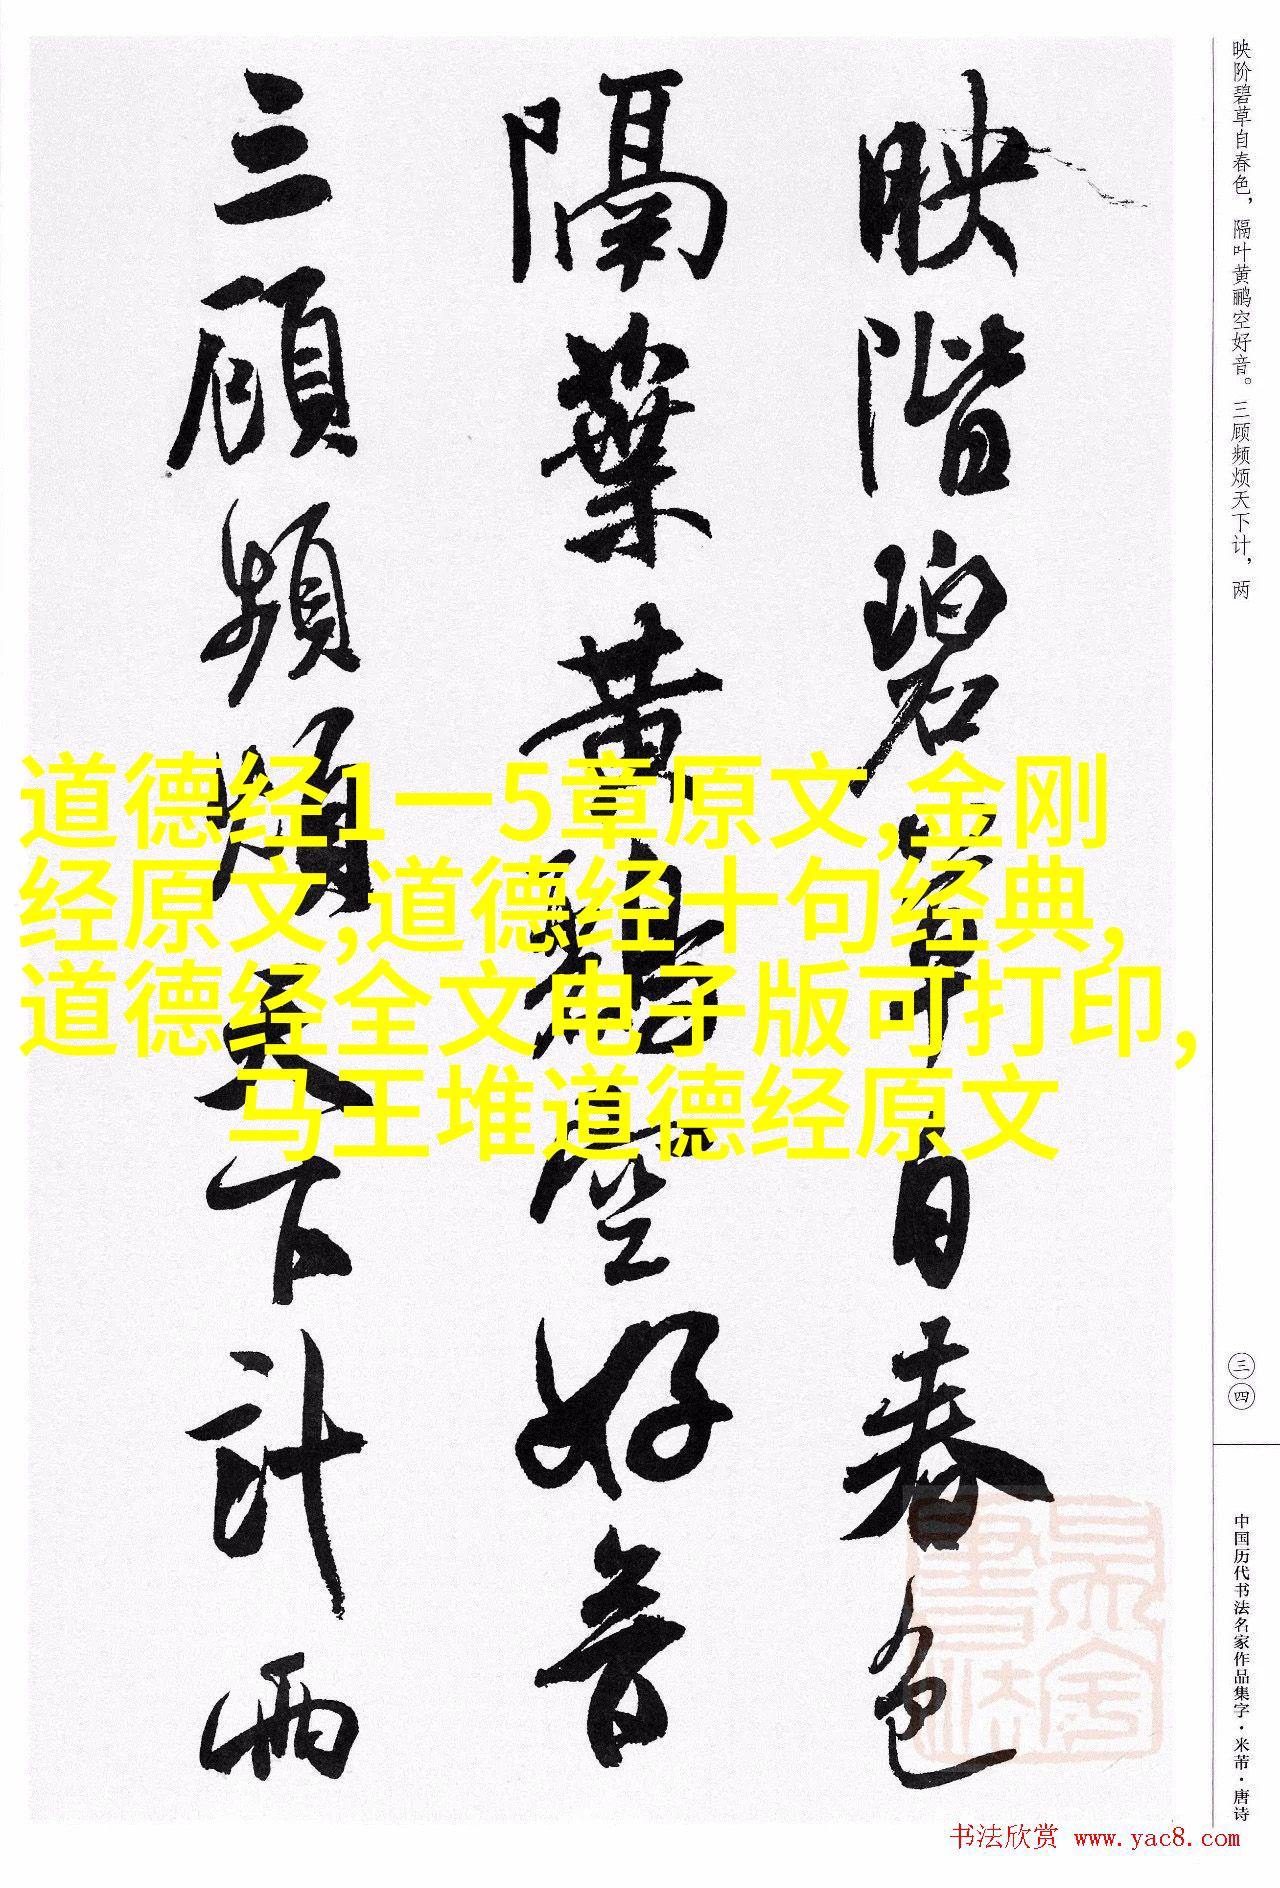 映階碧草自春色
隔葉黄鸝空好音
三顧頻煩天下計兩
映阶碧草自春色，隔叶黄鹂空好音。三顾频烦天下计，两
道德经1一5章原文,金刚
经原文,道德经十句经典,
道德经全文电子版可打印,
马王堆道德经原文
三四
中国历代书法名家作品集字·米芾·唐诗
书法欣赏 www.yac8.com